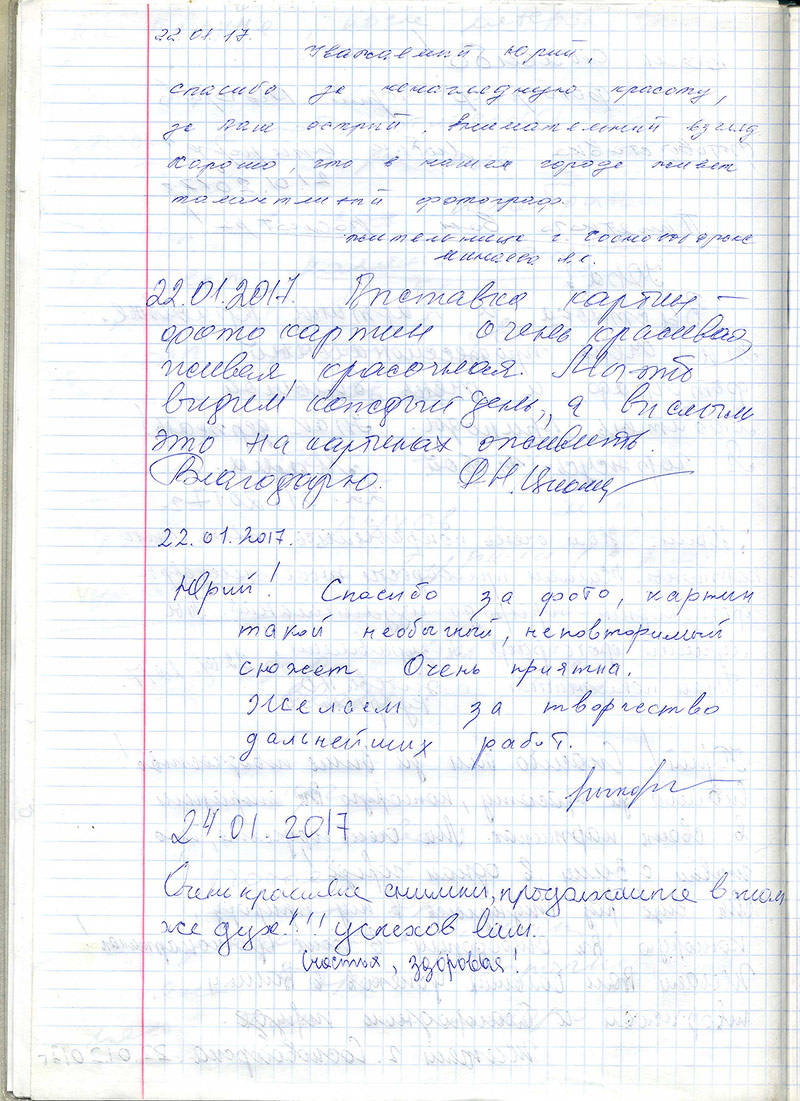 22.01.17.
Уважаемый Юрий,
спасибо за ненаглядную красоту,
за Ваш острый, внимательный взгляд
Хорошо, что в нашем городе живет
талантливый фотограф.
жительница г. Сосновоборска
Минаева
22.01.2017. Выставка картин –
фото картин очень красивая,
живая, красочная. Мы это
видим каждый день, а
это на картинах оживить.
Благодарю.
22.01.2017.
Юрий! Спасибо за фото, картин
такой необычный, неповторимый
сюжет Очень приятна.
Желаем за творчество
дальнейших работ.
24.01.2017
Очень красивые снимки, продолжайте в том
же духе!!! успехов вам.
Счастья, здоровая!